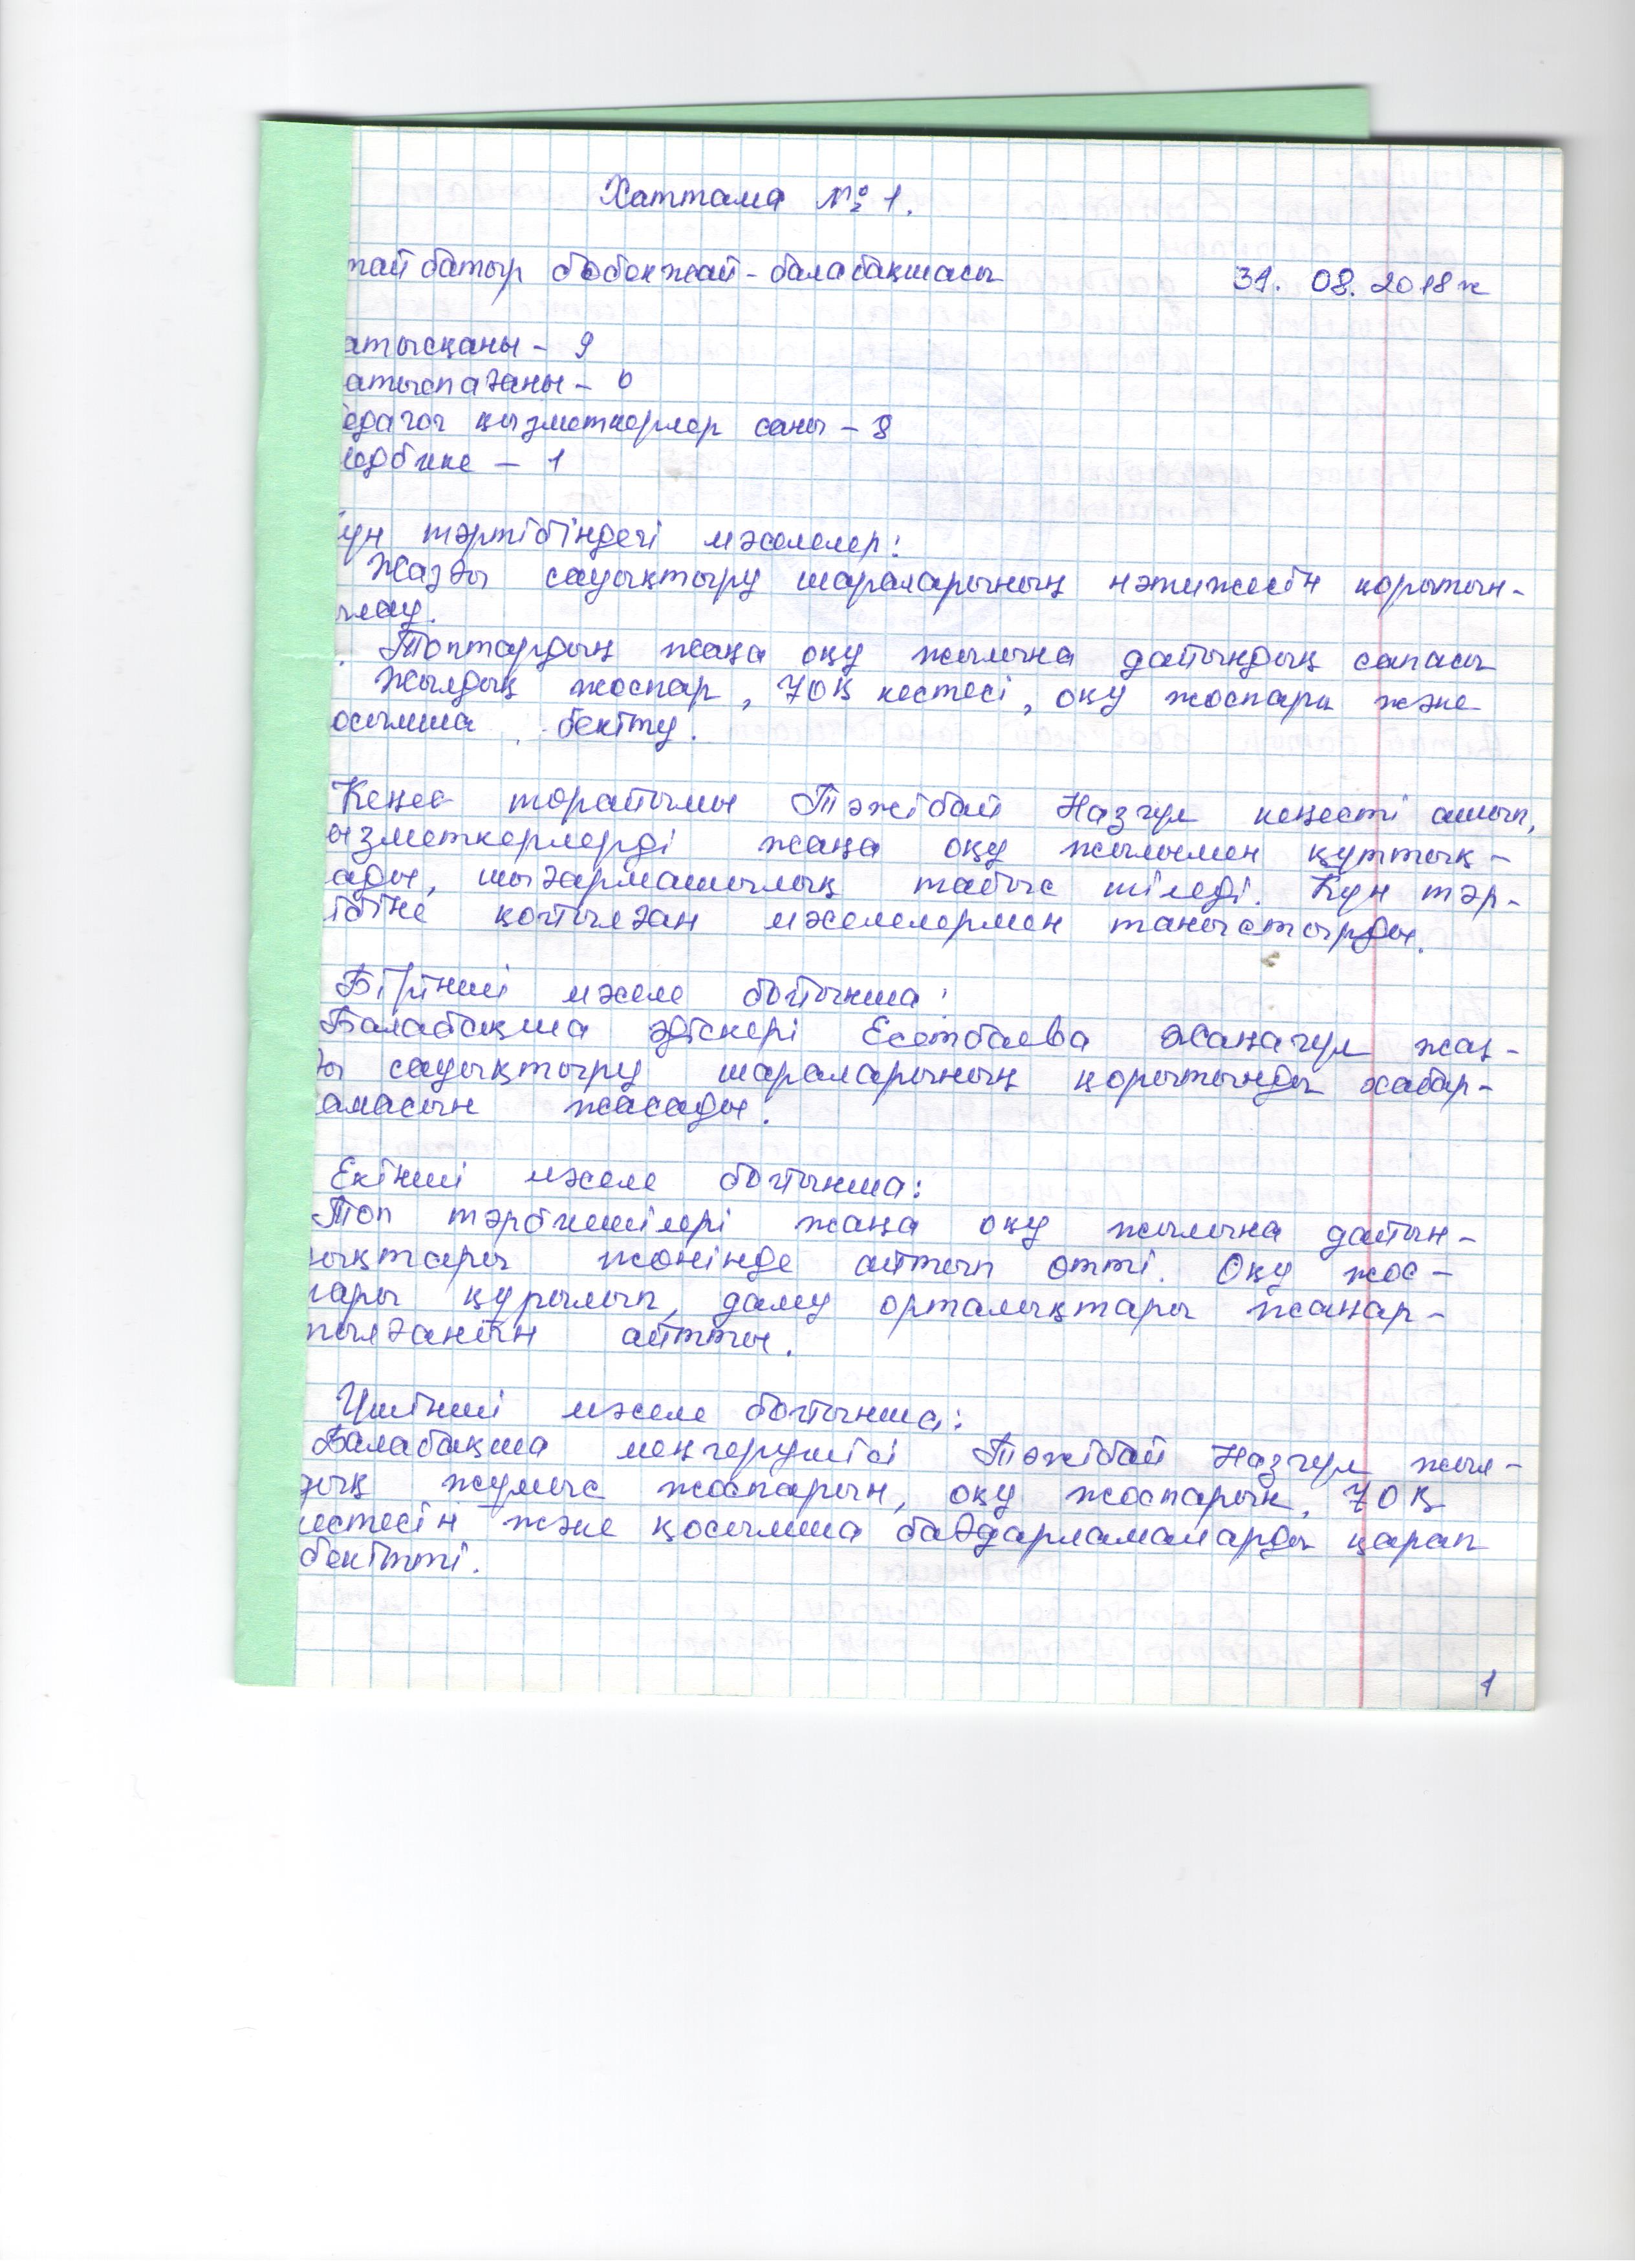 Хаттама №1.
тай батыр бөбекжай-балабақшасы 31. 08. 2018ж
атысқаны - 9
атыспағаны - 0
едагог қызметкерлер саны - 8
едбике - 1
үн тәртібіндегі мәселелер:
Жазғы сауықтыру шараларының нәтижесін қорытын-
лау.
. Топтардың жаңа оқу жылына дайындық сапасы
Жылдық жоспар, ҰОҚ кестесі, оқу жоспары және
осымша бекіту.
Кеңес төрайымы Тәжібай Назгүл кеңесті ашып,
ызметкерлерді жаңа оқу жылымен құттық-
ады, шығармашылық табыс тіледі. Күн тәр-
ібіне қойылған мәселелермен таныстырды.
Бірінші мәселе бойынша:
Балабақша әдіскері Есетбаева Жаңагүл жаз-
ғы сауықтыру шараларының қорытынды хабар-
амасын жасады.
Екінші мәселе бойынша:
Топ тәрбиешілері жаңа оқу жылына дайын-
ықтары жөнінде айтып өтті. Оқу жос-
пары құрылып, даму орталықтары жаңар-
тылғанын айтты.
Үшінші мәселе бойынша:
Балабақша меңгерушісі Тәжібай Назгүл жыл-
дық жұмыс жоспарын, оқу жоспарын, ҰОҚ
кестесін және қосымша бағдарламаларды қарап
бекітті.
1